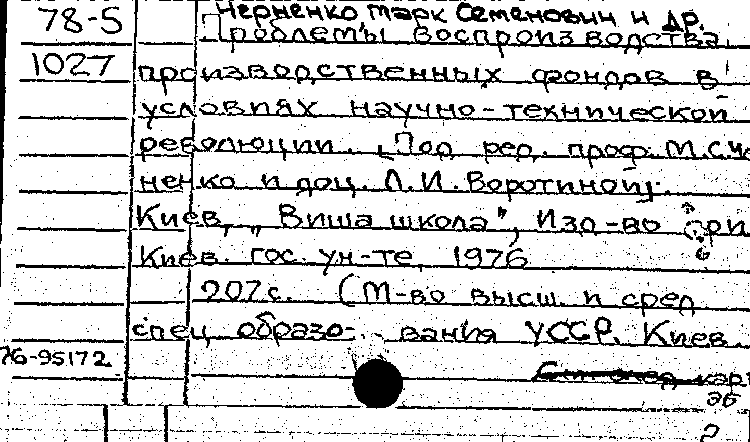 78-5 Черненко Марк Семенович и др.
Проблемы воспроизводства
1027 производственных фондов в
условиях научно-технической
революции. [Под ред. проф. М.С.Че
ненко и доц. Л.И.Воротиной].
Киев, „Виша школа", Изд-во при
Киев. гос. ун-те, 1976
207с. (М-во высш. и сред.
спец образо- вания УССР. Киев
76-95172
кар
эб